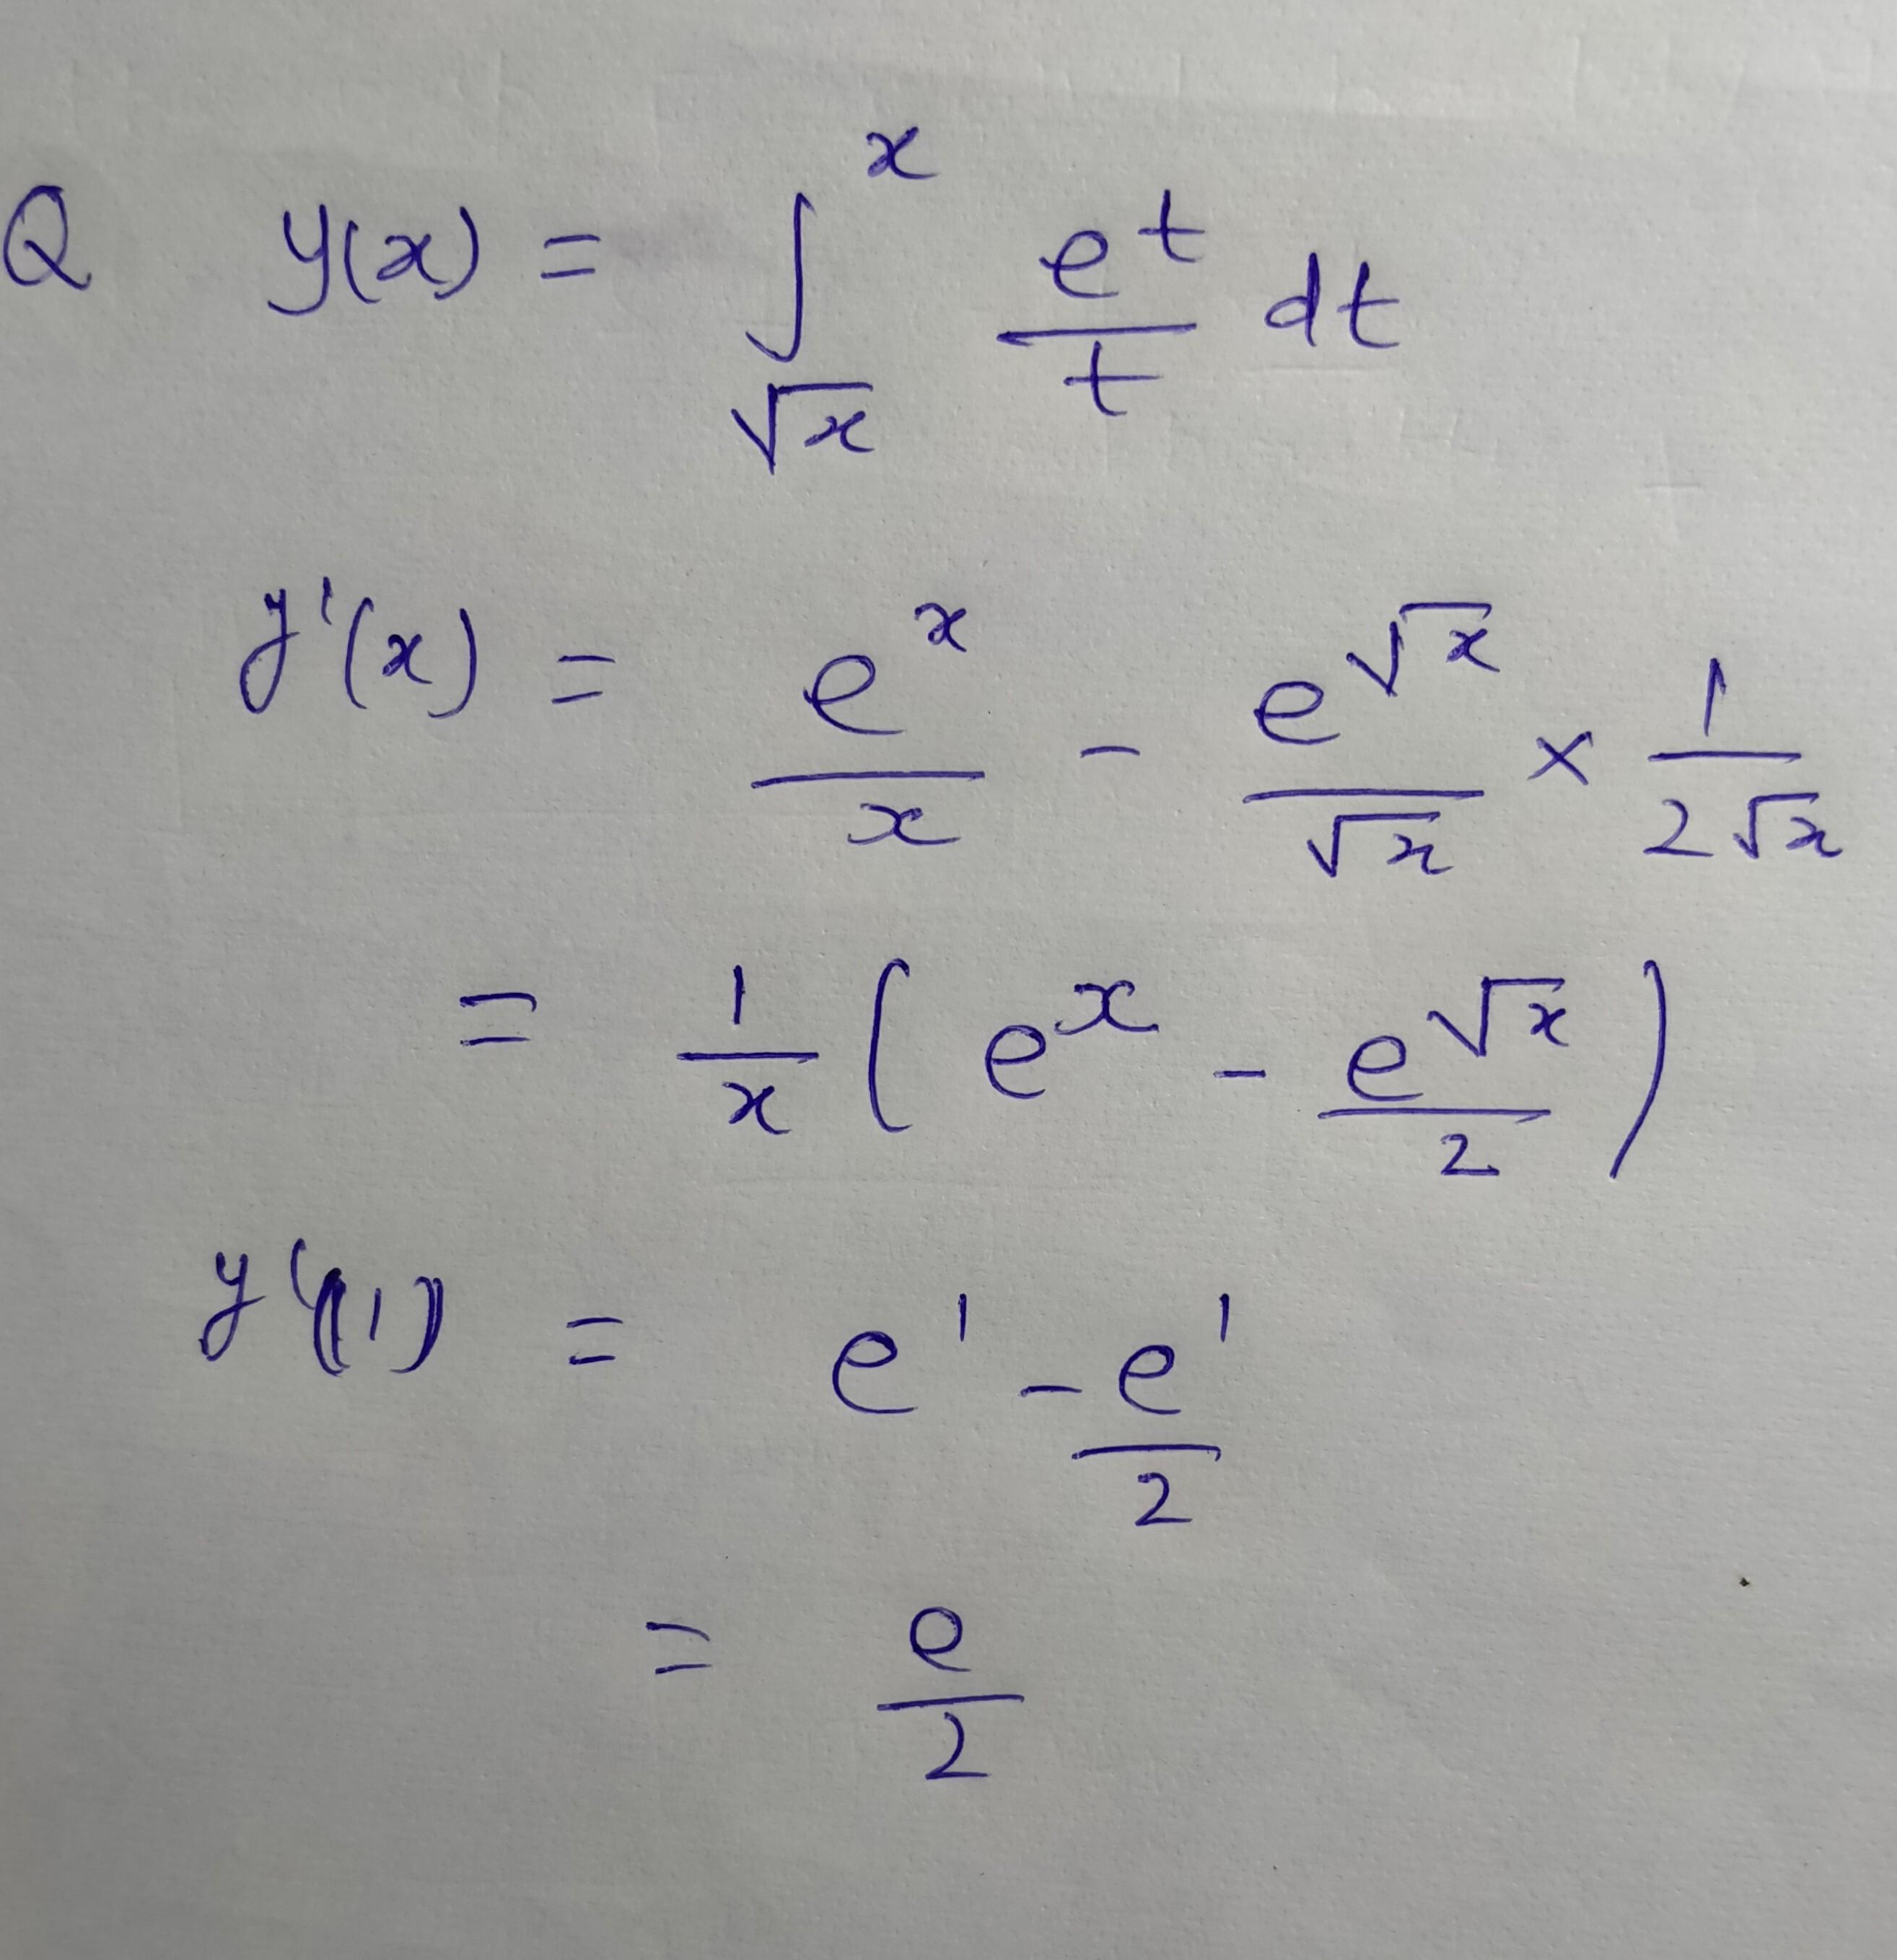 Q y(x) = ∫_{√x}^{x} e^t/t dt
y'(x) = e^x/x - e^{√x}/√x × 1/(2√x)
= 1/x ( e^x - e^{√x}/2 )
y'(1) = e^1 - e^1/2
= e/2